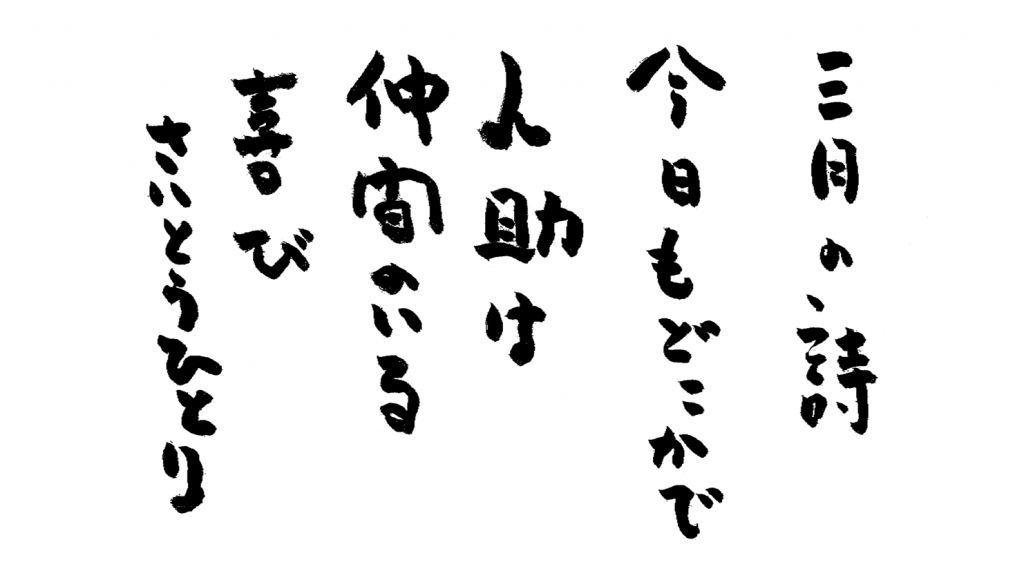 三月の詩
今日もどこかで
人助は
仲間のいる
喜び
さいとうひとり